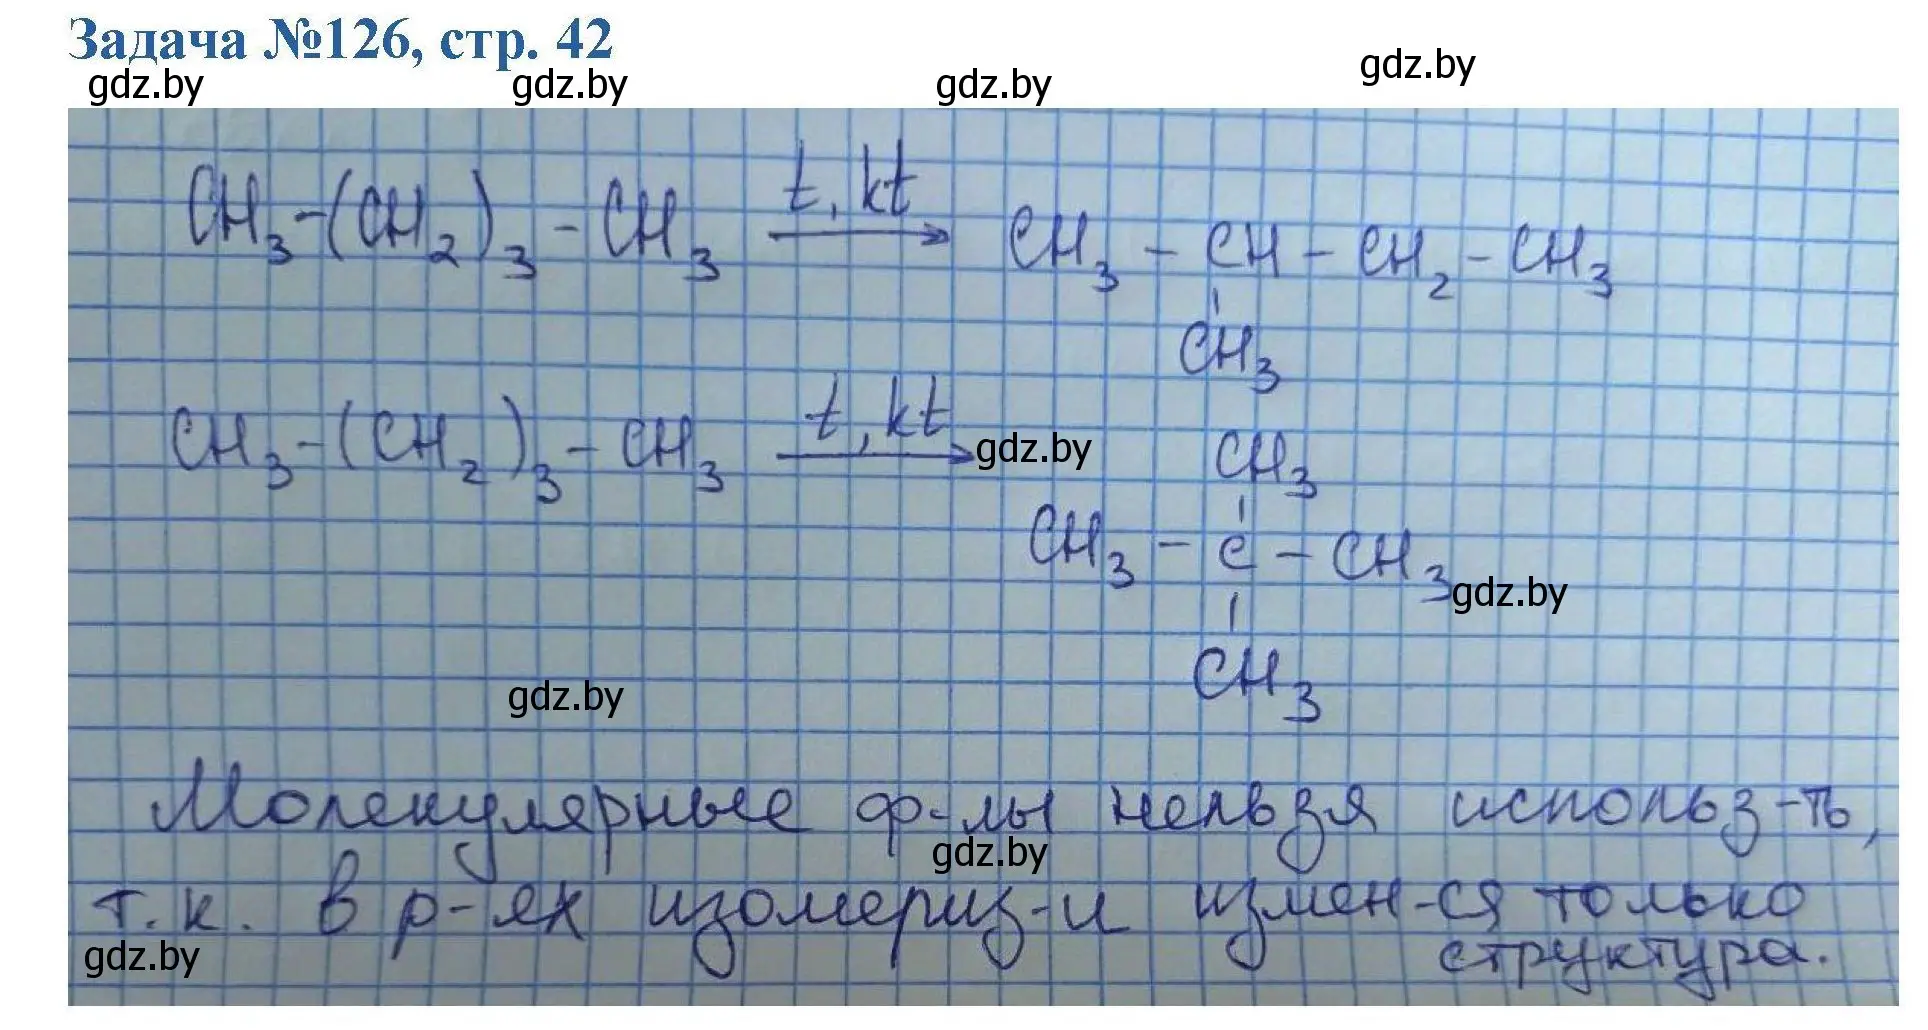 Задача №126, стр. 42
gdz.by gdz.by gdz.by gdz.by
t, kt
CH₃-(CH₂)₃-CH₃ → CH₃-CH-CH₂-CH₃
CH₃
t, kt
CH₃-(CH₂)₃-CH₃ → gdz.by
CH₃
CH₃-C-CH₃
gdz.by
CH₃
gdz.by
Молекулярные ф-лы нельзя использ-ть,
gdz.by
т.к. в р-ях изомериз-и измен-ся только
структура.
gdz.by